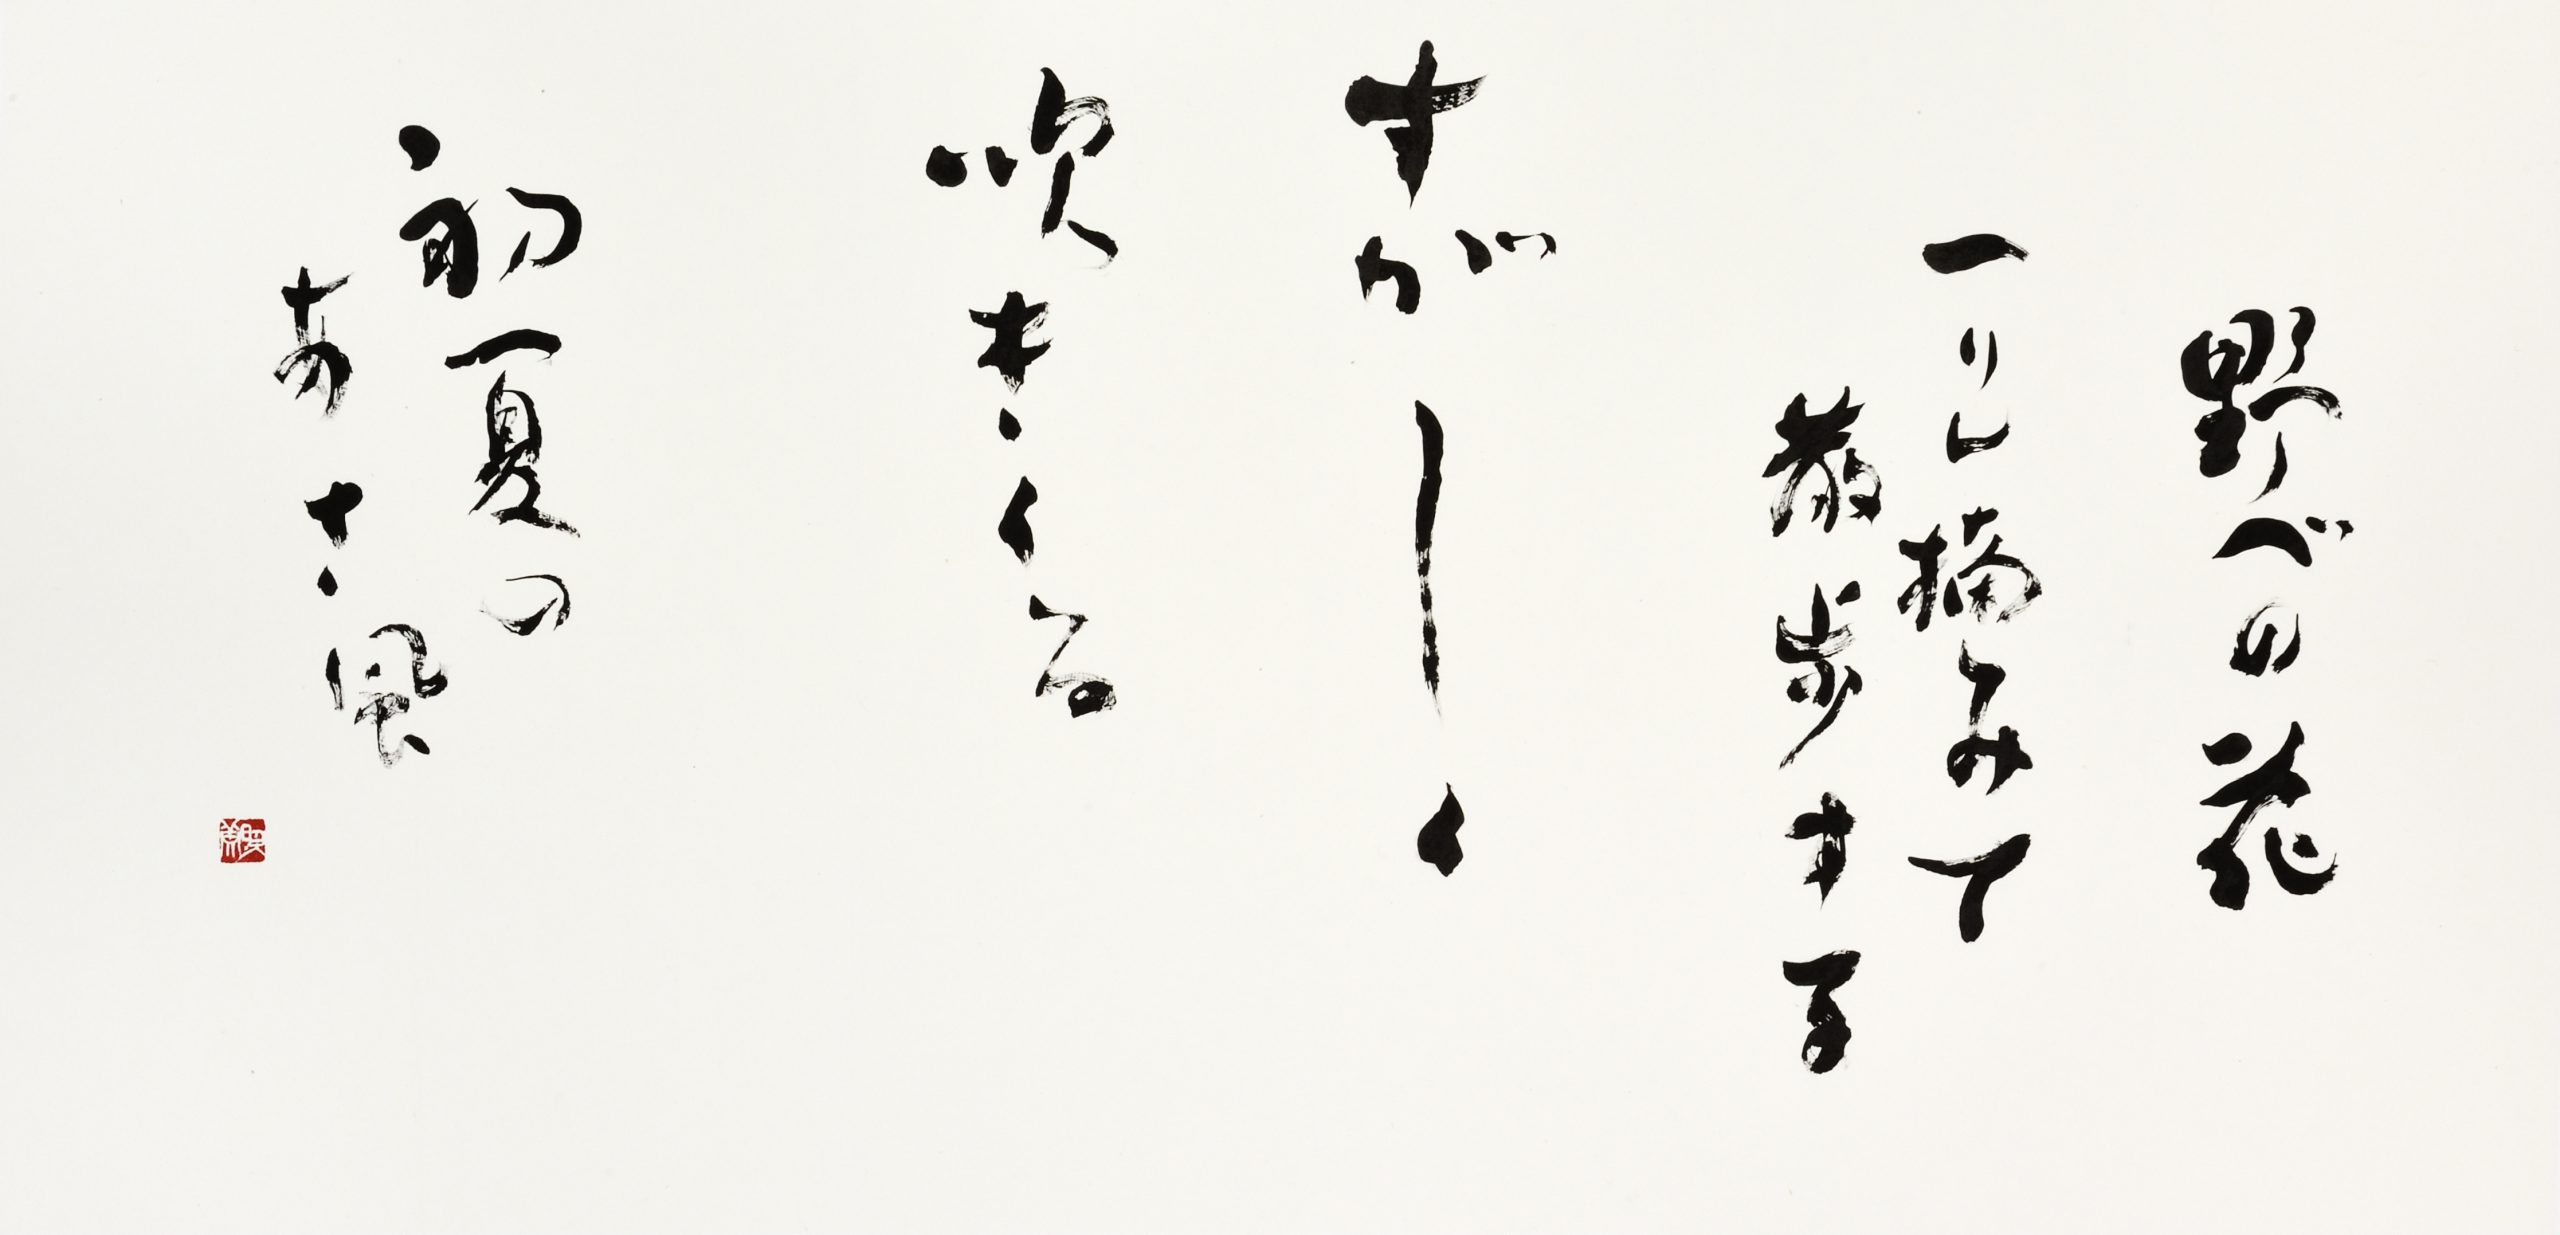 野べの花
一りん摘みて
散歩する
すがしく
吹きくる
初夏の
あさ風